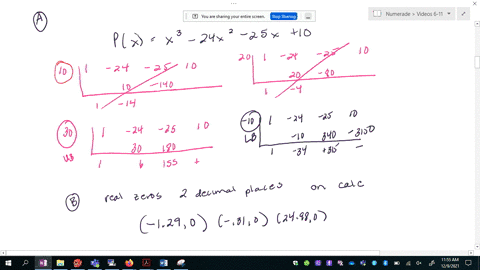 Numerade > Videos 6-11
You are sharing your entire screen. Stop Sharing
A
P(x) = x³ - 24x² - 25x + 10
10 1 -24 -25 10
10 -140
1 -14
20 1 -24 -25 10
20 -80
1 -4
30 1 -24 -25 10
UB 30 180
1 6 155 +
-10 1 -24 -25 10
LB -10 340 -3150
1 -34 +315 -
B real zeros 2 decimal places on calc
(-1.29,0) (-.31,0) (24.98,0)
11:55 AM
12/9/2021